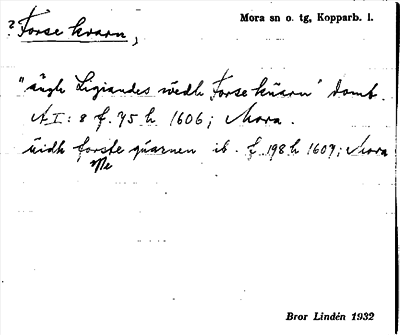 Mora sn o. tg, Kopparb. l.
? Forse kvarn,
"ängh Ligiandes wedh Forse kuarn" domb.
A I: 8 f. 75 h 1606; Mora.
uidh forste quarnen ib. f. 198 h 1607; Mora
Bror Lindén 1932